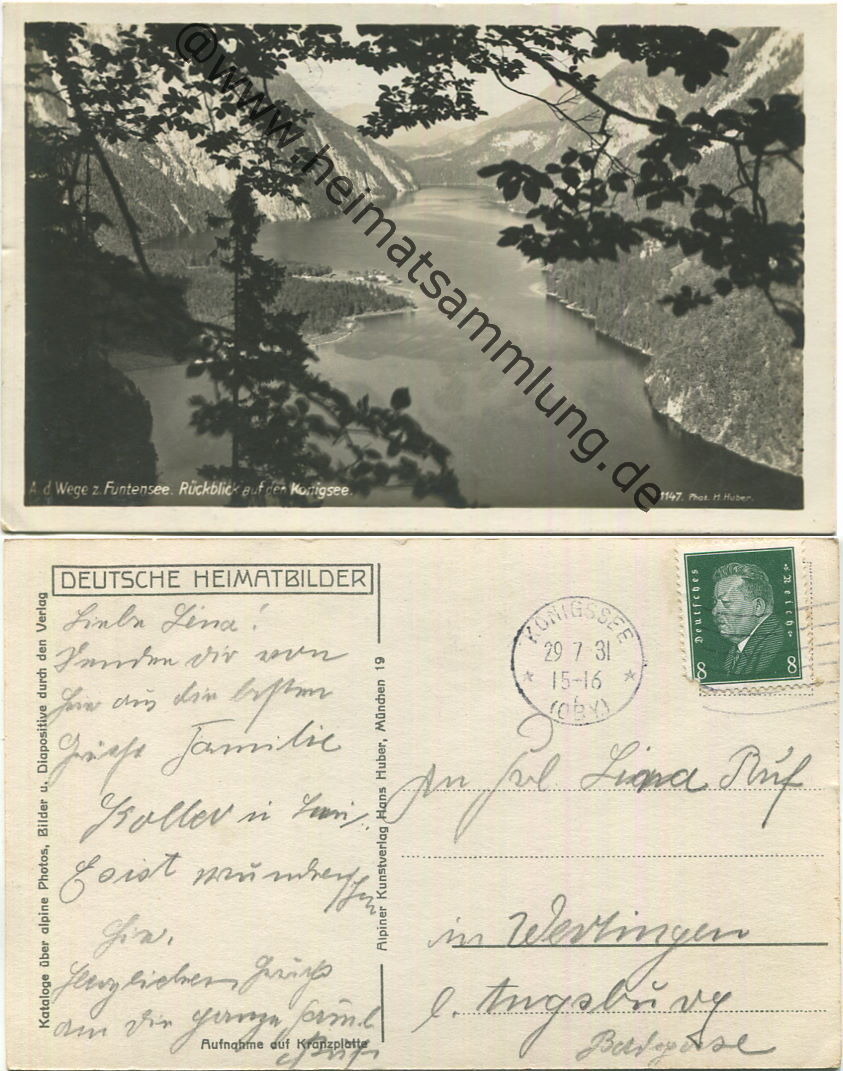 @www.heimatsammlung.de
A. d. Wege z. Funtensee. Rückblick auf den Königsee.
1147. Phot. H. Huber.
DEUTSCHE HEIMATBILDER
Kataloge über alpine Photos, Bilder u. Diapositive durch den Verlag
Liebe Lina!
Senden dir von
hier aus die besten
Grüße Familie
Koller u
Es ist wunderschön
hier.
Herzlichen Gruß
an die ganze Famil
Ruf
Aufnahme auf Kranzplatte
Alpiner Kunstverlag Hans Huber, München 19
KÖNIGSSEE
29 7 31
15-16
(OBY)
Deutsches Reich
8 8
An Frl Lina Ruf
in Wertingen
b. Augsburg
Badgasse